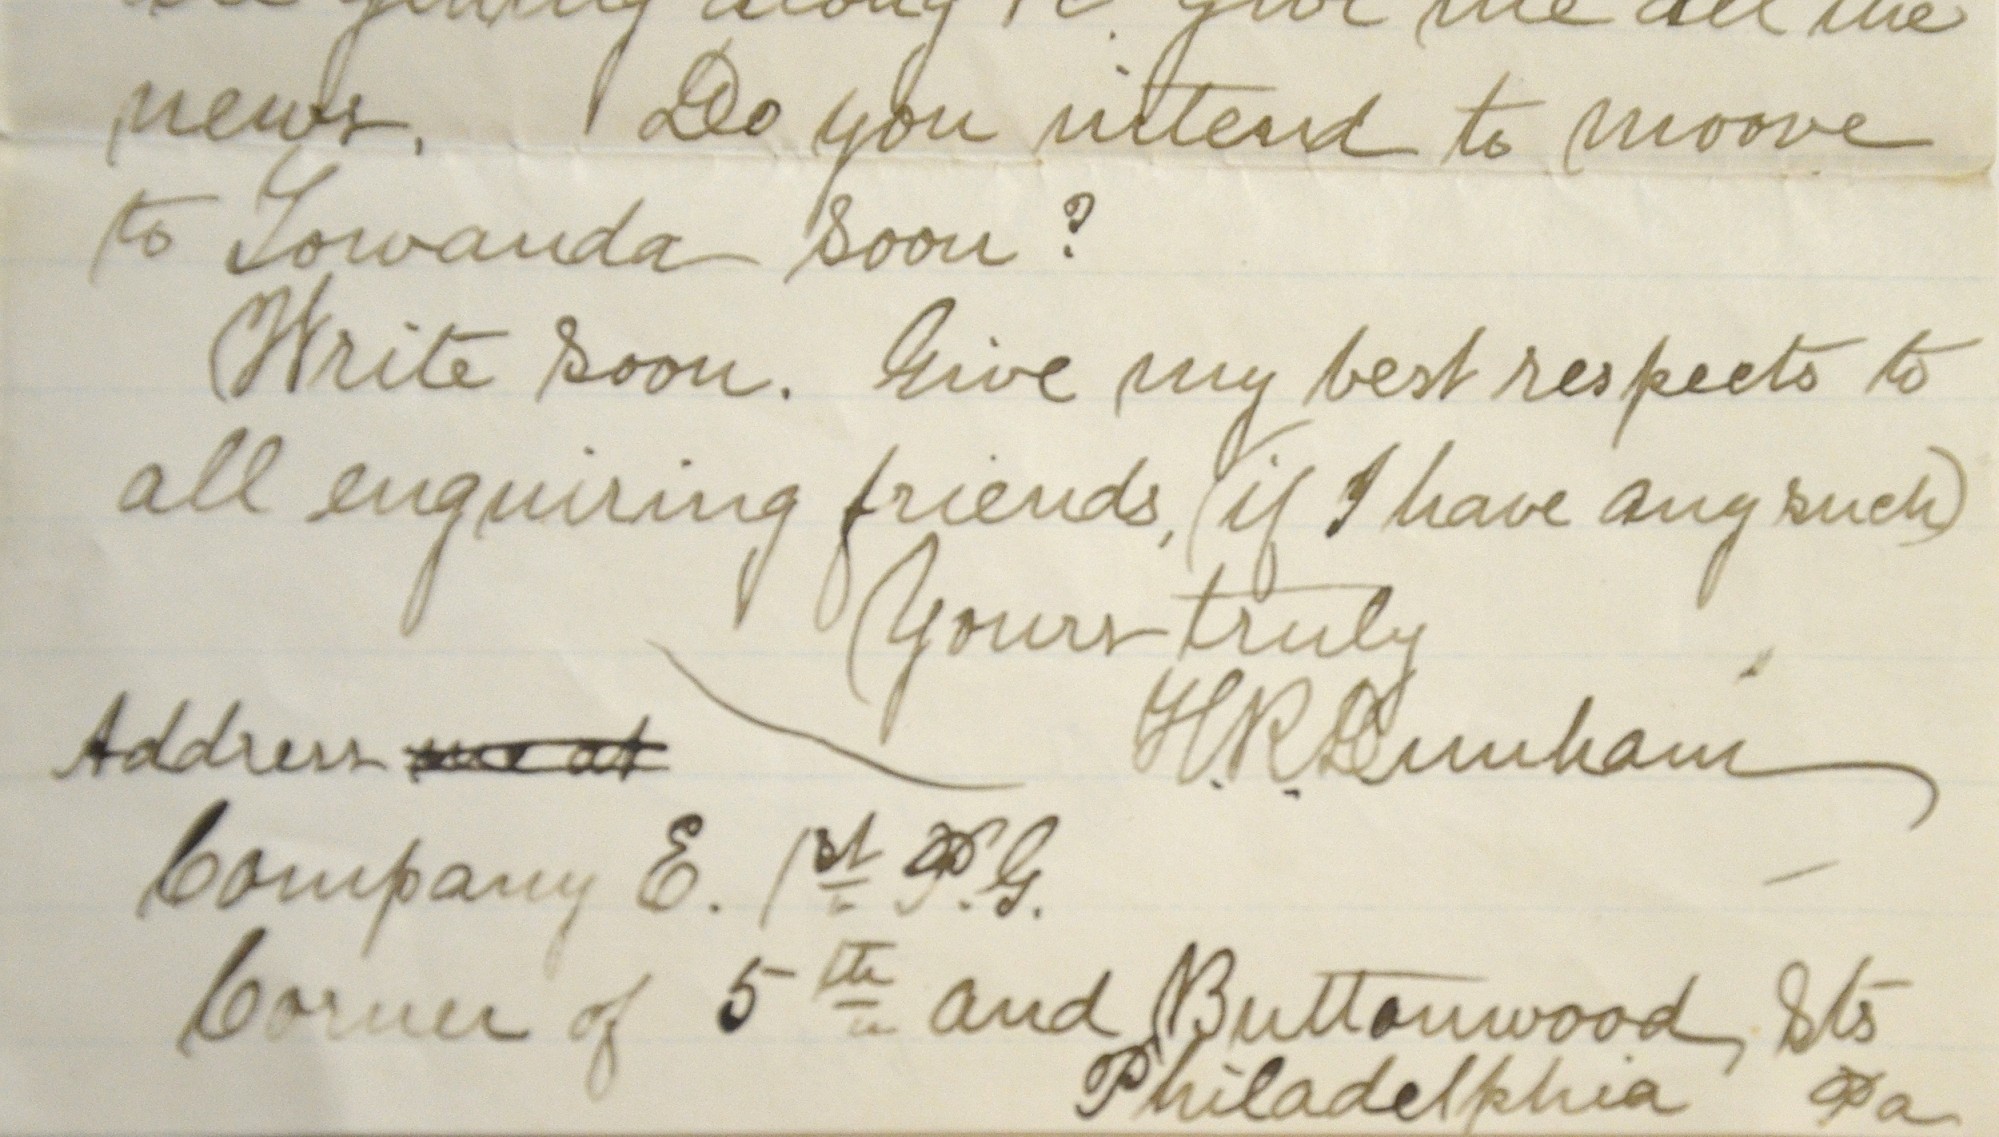 getting along &c. Give me all the
news. Do you intend to moove
to Towanda soon?
Write soon. Give my best respects to
all enquiring friends, (if I have any such)
Yours truly
H. R. Dunham
Address me at
Company E. 1st P. G.
Corner of 5th and Buttonwood, Sts
Philadelphia Pa